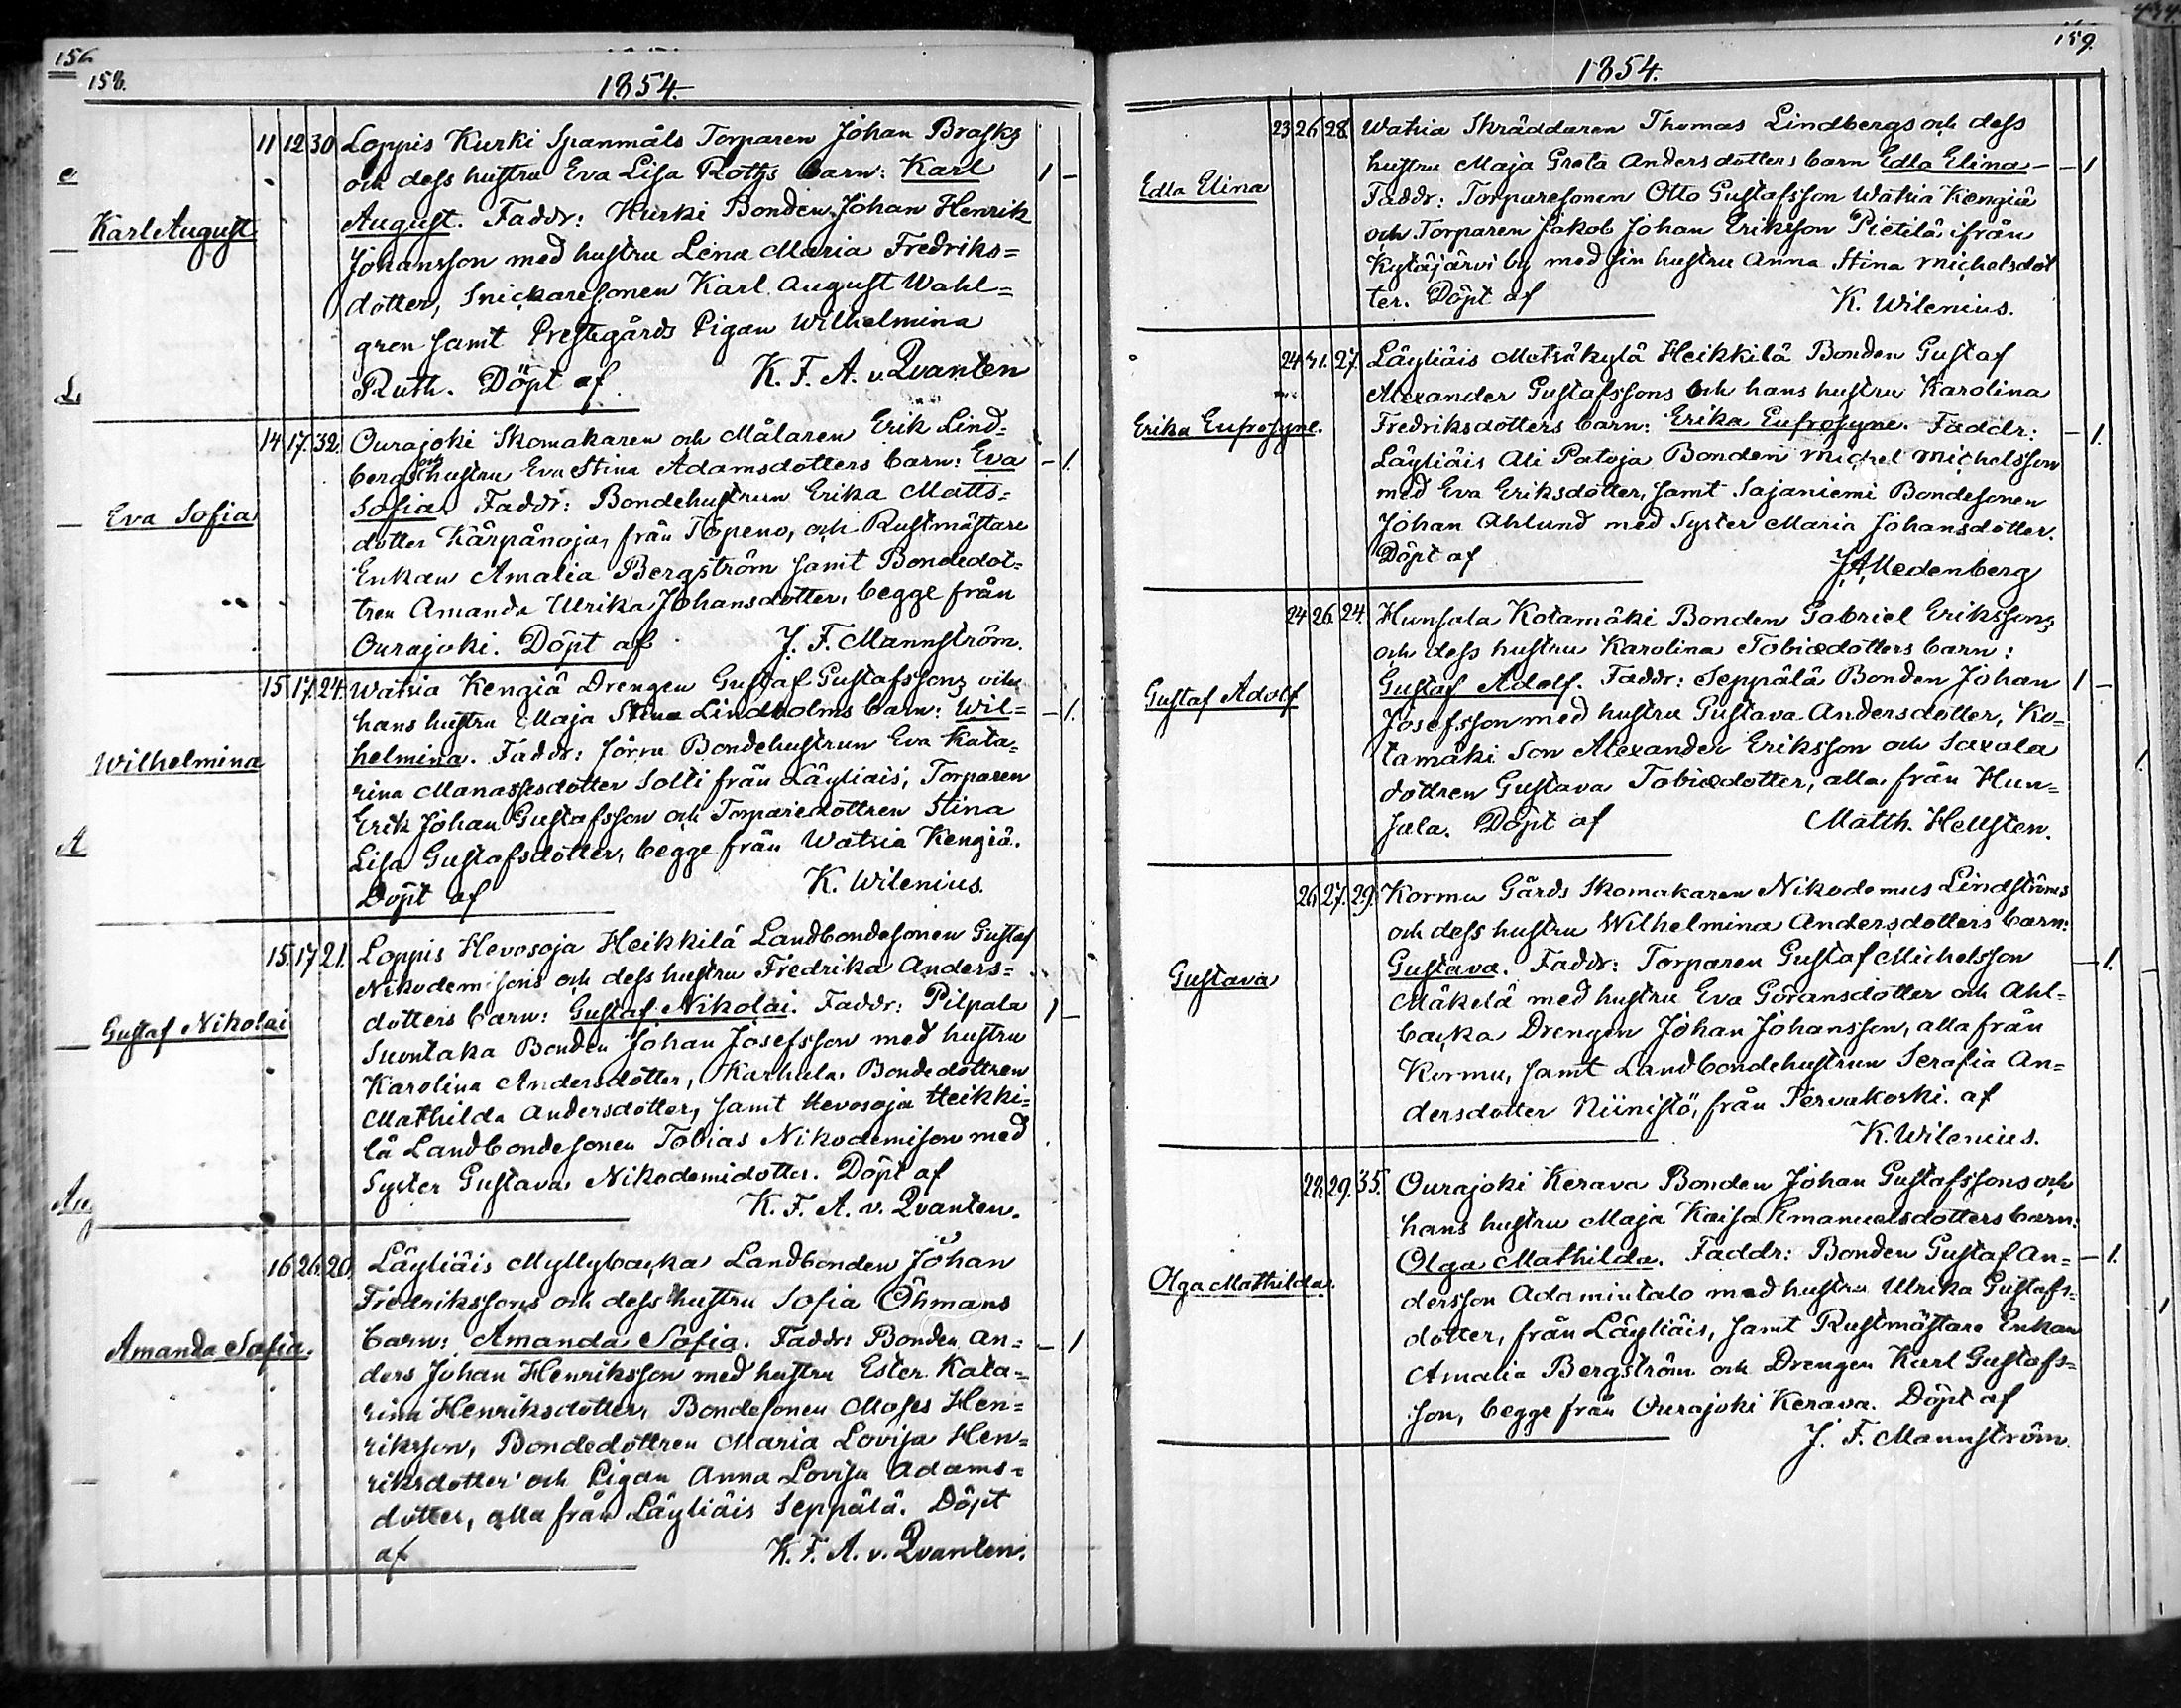 156
158.
1854.
11 12 30 Loppis Kurki Spanmåls Torparen Johan Brasks
och dess hustru Eva Lisa Roths barn: Karl 1 –
Karl August
August. Faddr: Kurki Bonden Johan Henrik
Johansson med hustru Lena Maria Fredriks=
dotter, Snickaresonen Karl August Wahl=
gren samt Prestegårds Pigan Wilhelmina
Ruth. Döpt af K. F. A. v. Qvanten
14. 17. 32. Ourajoki Skomakaren och Målaren Erik Lind=
bergs och hustru Eva Stina Adamsdotters barn: Eva – 1.
Eva Sofia
Sofia. Faddr: Bondehustrun Erika Matts=
dotter Kärpänoja, från Topeno, och Rustmästare
Enkan Amalia Bergström samt Bondedot=
tren Amanda Ulrika Johansdotter, begge från
Ourajoki. Döpt af J. F. Mannström.
15. 17. 24. Watsia Kengiä Drengen Gustaf Gustafssons och
hans hustru Maja Stina Lindholms barn: Wil= – 1.
Wilhelmina
helmina. Faddr: Bondehustrun Eva Kata=
rina Manassesdotter Solti från Läyliäis, Torparen
Erik Johan Gustafsson och Torparedottren Stina
Lisa Gustafsdotter, begge från Watsia Kengiä.
Döpt af K. Wilenius.
15. 17 21. Loppis Hevosoja Heikkilä Landbondesonen Gustaf
Nikodemisons och dess hustru Fredrika Anders=
dotters barn: Gustaf Nikolai. Faddr: Pilpala 1 –
Gustaf Nikolai
Suontaka Bonden Johan Josefsson med hustru
Karolina Andersdotter, Karhula Bondedottren
Mathilda Andersdotter, samt Hevosoja Heikki=
lä Landbondesonen Tobias Nikodemison med
Syster Gustava Nikodemidotter. Döpt af
K. F. A. v. Qvanten.
16 26. 20. Läyliäis Myllybacka Landbonden Johan
Fredrikssons och dess hustru Sofia Öhmans
Amanda Sofia.
barn: Amanda Sofia. Faddr: Bonden An= – 1
ders Johan Henriksson med hustru Ester Kata=
rina Henriksdotter, Bondesonen Moses Hen=
riksson, Bondedottren Maria Lovisa Hen=
riksdotter och Pigan Anna Lovisa Adams=
dotter, alla från Läyliäis Seppälä. Döpt
af K. F. A. v. Qvanten.
159.
1854.
23 26 28. Watsia Skräddaren Thomas Lindbergs och dess
hustru Maja Greta Andersdotters barn Edla Elina – – 1
Edla Elina
Faddr: Torparesonen Otto Gustafsson Watsia Kengiä
och Torparen Jakob Johan Eriksson Pietilä ifrån
Kytäjärvi by med sin hustru Anna Stina Michelsdot
ter. Döpt af K. Wilenius.
24 31. 27. Läyliäis Metsäkylä Heikkilä Bonden Gustaf
Alexander Gustafssons och hans hustru Karolina
Erika Eufrosyne.
Fredriksdotters barn: Erika Eufrosyne. Faddr: – 1.
Läyliäis Ali Patoja Bonden Michel Michelsson
med Eva Eriksdotter, samt Sajaniemi Bondesonen
Johan Ahlund med Syster Maria Johansdotter.
Döpt af
24 26. 24. Hunsala Kotamäki Bonden Gabriel Erikssons
och dess hustru Karolina Tobiædotters barn:
Gustaf Adolf
Gustaf Adolf. Faddr: Seppälä Bonden Johan 1 –
Josefsson med hustru Gustava Andersdotter, Ko=
tamäki Son Alexander Eriksson och Saxala
dottren Gustava Tobiædotter, alla från Hun=
sala. Döpt af Matth. Hellsten.
26. 27. 29. Kormu Gårds Skomakaren Nikodemus Lindströms
och dess hustru Wilhelmina Andersdotters barn:
Gustava
Gustava. Faddr: Torparen Gustaf Michelsson – 1.
Mäkelä med hustru Eva Göransdotter och Ahl=
backa Drengen Johan Johansson, alla från
Kormu, samt Landbondehustrun Serafia An=
dersdotter Niinistö, från Tervakoski. af
K. Wilenius.
28. 29. 35. Ourajoki Kerava Bonden Johan Gustafssons och
hans hustru Maja Kaisa Emanuelsdotters barn:
Olga Mathilda.
Olga Mathilda. Faddr: Bonden Gustaf An= – 1.
dersson Adamintalo med hustru Ulrika Gustafs=
dotter, från Läyliäis, samt Rustmästare Enkan
Amalia Bergström och Drengen Karl Gustafs=
son, begge från Ourajoki Kerava. Döpt af
J. F. Mannström